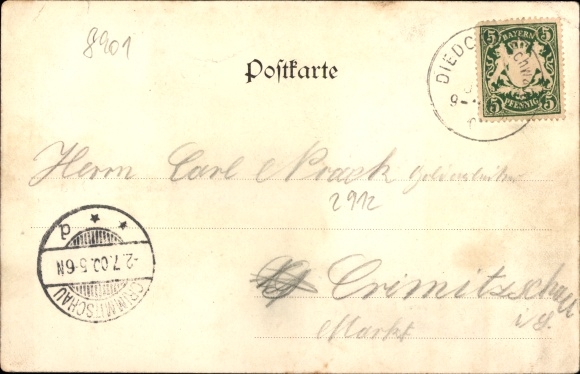 8901
Postkarte
5 BAYERN 5
5 PFENNIG 5
DIEDO
Herrn Carl Noack
2912
d
2.7.00.5-6N
CRIMMITSCHAU
Crimitzschau
i/S.
Markt